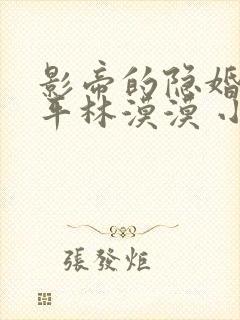 影帝的隐婚
平林漠漠 小
張發炬